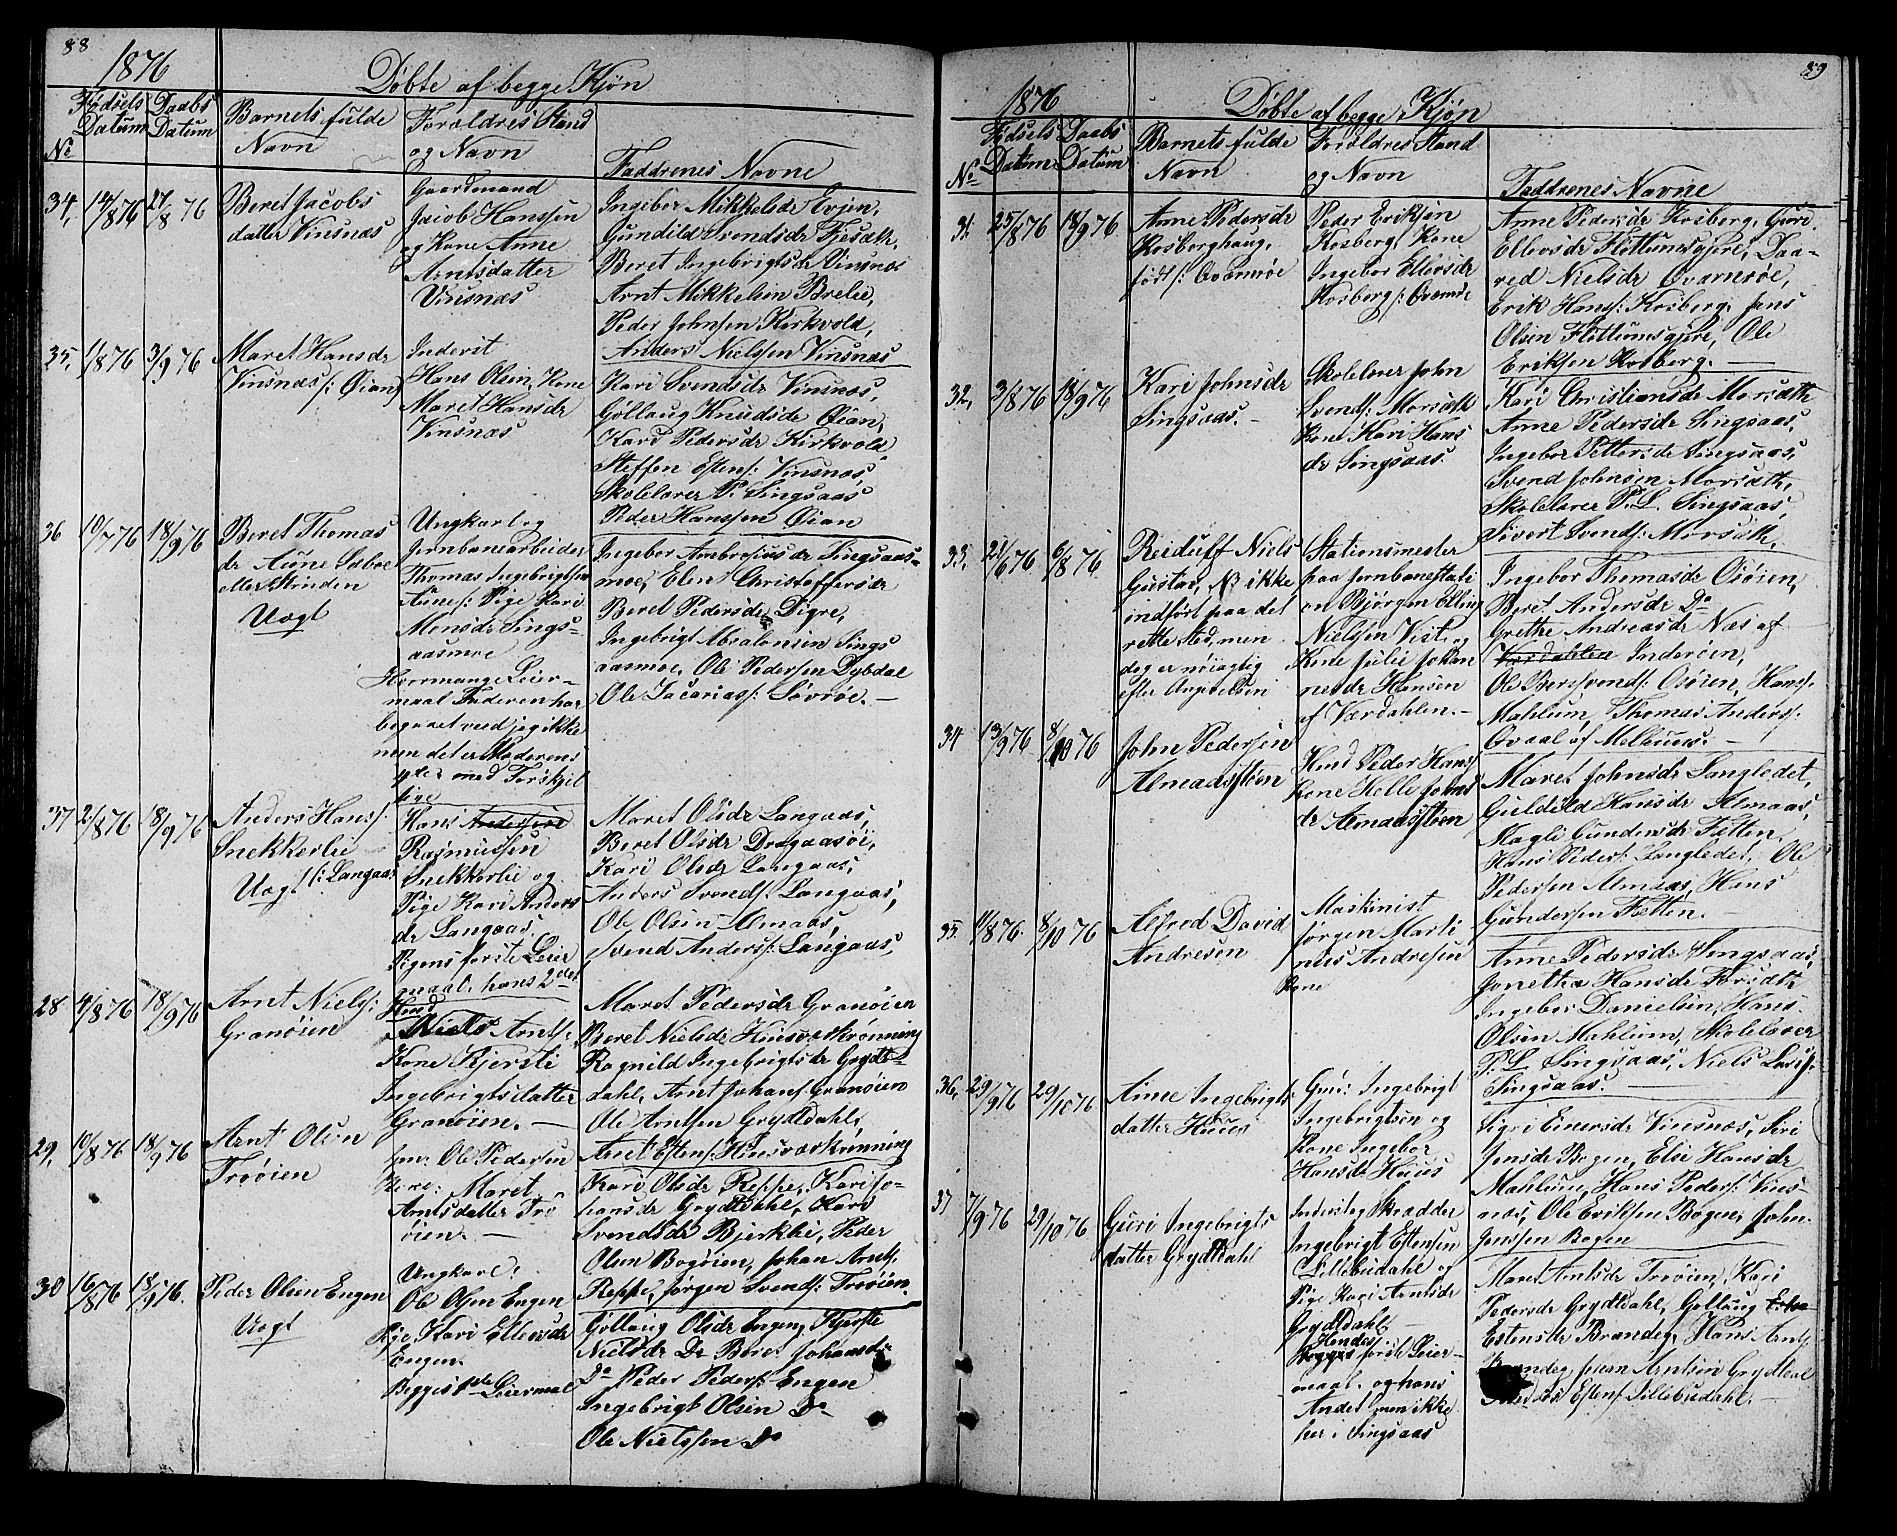 88
1876
Døbte af begge Kjøn
No
Fødsels Datum
Daabs Datum
Barnets fulde Navn
Forældres Stand og Navn
Faddrenes Navne
34, 12/8 76 27/8 76
Beret Jacobs
datter Vinsnæs
Gaardmand
Jacob Hanssen
og Kone Anne
Arntsdatter
Vinsnæs
Ingebor Mikkelsdr Evjen,
Gundild Svendsdr
Beret Ingebrigtsdr Vinsnæs
Arnt Mikkelsen Brelie,
Peder Johnsen Kirkvold,
Anders Nielsen Vinsnæs
35, 1/8 76 3/9 76
Maret Hansdr
Vinsnæs /: Øian
Inderst
Hans Olsen, Kone
Maret Hansdr
Vinsnæs
Kari Svendsdr Vinsnæs,
Gollaug Knudsdr Øian,
Kari Pedersdr Kirkvold,
Steffen Estens: Vinsnæs,
Skolelærer P. Singsaas
Peder Hanssen Øian
36 10/7 76 18/9 76
Beret Thomas
dr Aune Sæboe
eller Strinden
Uægt
Ungkarl og
Jernbanearbeider
Thomas Ingebrigtsen
Aune /: Pige Kari
Monsdr Sings=
aasmoe
Hvormange Leier=
maal Faderen har
begaaet veed jeg ikke
men det er Moderens
med Forskjel
lige
Ingebor Ambrosiusdr Singsaas=
moe, Elen Christoffersdr
Beret Pedersdr Digre,
Ingebrigt Absalonsen Sings
aasmoe, Ole Pedersen Dybdal
Ole Sacarias/: Løvrøe. —
37 2/8 76 18/9 76
Anders Hans/:
Snekkerlie
Uægt /: Langaas
Hans Andersen
Rasmussen
Snekkerlie og
Pige Kari Anders
dr Langaas.
Pigens første Leier
maal, hans 2det
Maret Olsdr Langaas,
Beret Olsdr Dragaasøi,
Kari Olsdr Langaas,
Anders Svends/: Langaas,
Ole Olsen Almaas,
Svend Anders/: Langaas,
28 4/8 76 18/9 76
Arnt Niels/:
Granøien
Huusmd
Niels Arnts/:
Kone Kjersti
Ingebrigtsdatter
Granøien. —
Maret Pedersdr Granøien
Beret Nielsdr Huusværkrønning
Ragnild Ingebrigtsdr Grydt=
dahl, Arnt Johans/ Granøien
Ole Arntsen Grydtdahl,
Arnt Estens/:
29, 10/8 76 18/9 76
Arnt Olsen
Trøøien
Ole Pedersen
Kone: Maret
Arntsdatter Trø
øien. —
Kari Olsdr Reppe, Kari Jo=
hansdr Grydtdahl, Kari
Svendsdr Bjerklie, Peder
Olsen Bogøien, Johan Arnts/:
Reppe, Jørgen Svends/: Trøøien.
30 16/8 76 18/9 76.
Peder Olsen Engen
Uægt
Ungkarl:
Ole Olsen Engen
Pige, Kari Ellevsdr
Engen.
Begges 1ste Leiermaal
Gollaug Olsdr Engen, Kjerste
Nielsdr Do Beret Johansdr
Do Peder Peders/: Engen
Ingebrigt Olsen Do
Ole Nielssen Do
89
1876
Døbte af begge Kjøn
No
Fødsels Datum
Daabs Datum
Barnets fulde Navn
Forældres Stand og Navn
Faddrenes Navne
31. 25/8 76 18/9 76
Anne Pedersdr
Kosberghaug,
født /: Qvamrøe
Peder Eriksen
Kosberg, Kone
Ingebor Ellevsdr
Kosberg /: Qvamrøe
Anne Pedersdr Kosberg, Guri
Ellevsdr Fløttumsgjere, Daa=
red Nielsdr Qvamrøe,
Erik Hans/: Kosberg, Jens
Olsen Fløttumsgjere, Ole
Eriksen Kosberg. —
32, 3/8 76 18/9 76
Kari Johnsdr
Singsaas. —
Skolelærer John
Svends/: Morsæth
Kone Kari Hans
dr Singsaas.
Kari Christiansdr Morsæth
Anne Pedersdr Singsaas,
Ingebor Pettersdr Singsaas,
Svend Johnsen Morsæth,
Skolelærer P. L. Singsaas,
Sivert Svends/: Morsæth,
33, 21/6 76 6/8 76
Reiduff Niels
Gustav, NB ikke
indført paa det
rette sted, men
deg er nøiagtig
efter Angivelsen
Stationsmester
paa Jernbanestati
on Bjørgen Elling
Nielssen Vist, og
Kone Julie Johan
nesdr Hansen
af Værdahlen. —
Ingebor Thomasdr Osøien,
Beret Andersdr Do
Grethe Andreasdr Næs af
Værdahlen Inderøen,
Ole Bersvends/: Osøien, Hans/:
Mahlum, Thomas Anders/:
Qvaal af Melhuus. —
34 13/9 76 8/10 76
John Pedersen
Almaasstøen
Husmd Peder Hans/
Kone Kelle Johns
dr Almaasstøen
Maret Johnsdr Langledet,
Guldild Hansdr Almaas,
Magli Gundersdr Fætten
Hans Peders/: Langledet, Ole
Pedersen Almaas, Hans
Gundersen Fætten. —
35. 11/8 76. 8/10 76
Alfred David
Andresen
Maskinist
Jørgen Marti
nus Andresen
Kone
Anne Pedersdr Singsaas,
Jonetha Hansdr Forsæth,
Ingebor Danielsen, Hans
Olsen Mahlum, Skolelærer
P. L. Singsaas, Niels
Singsaas. —
36, 29/9 76 29/10 76
Anne Ingebrigts
datter Huus
Grd: Ingebrigt
Ingebrigtsen og
Kone Ingebor
Hansdr Huus
Sigri Einersdr Vinsnæs, Siri
Jensdr Bogen, Elsi Hansdr
Mahlum, Hans Peders/: Vins=
næs, Ole Eriksen Bogen, John
Jenssen Bogen
37 7/9 76 29/10 76
Guri Ingebrigts
datter Grydtdahl
Inderst og Skrædder
Ingebrigt Estensen
Lillebudahl og
Pige Kari Arntsdr
Grydtdahl. —
Hendes
første Leier=
maal, og hans
Andet men ikke
her i Singsaas
Maret Arntsdr Trøøien, Kari
Pedersdr Grydtdahl, Gollaug
Estensdr Brandeg, Hans Arnts/
Brandeg, Arntsen Grydtdal
Estens/ Lillebudahl. —